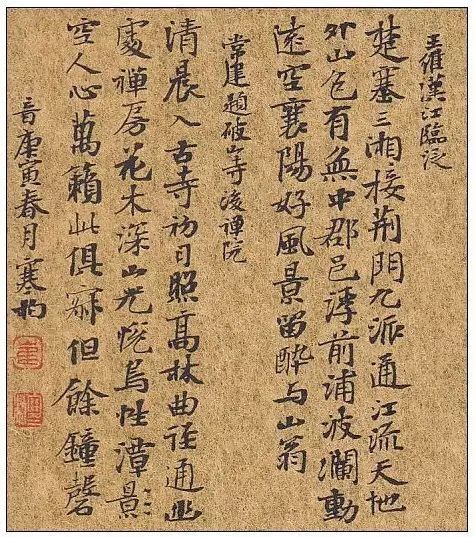 王維漢江臨泛
楚塞三湘接荆門九派通江流天地
外山色有無中郡邑浮前浦波瀾動
遠空襄陽好風景留醉与山翁
常建題破山寺後禪院
清晨入古寺初日照高林曲徑通幽
處禪房花木深山光悦鳥性潭影
空人心萬籟此俱寂但餘鐘磬
音庚寅春月寒